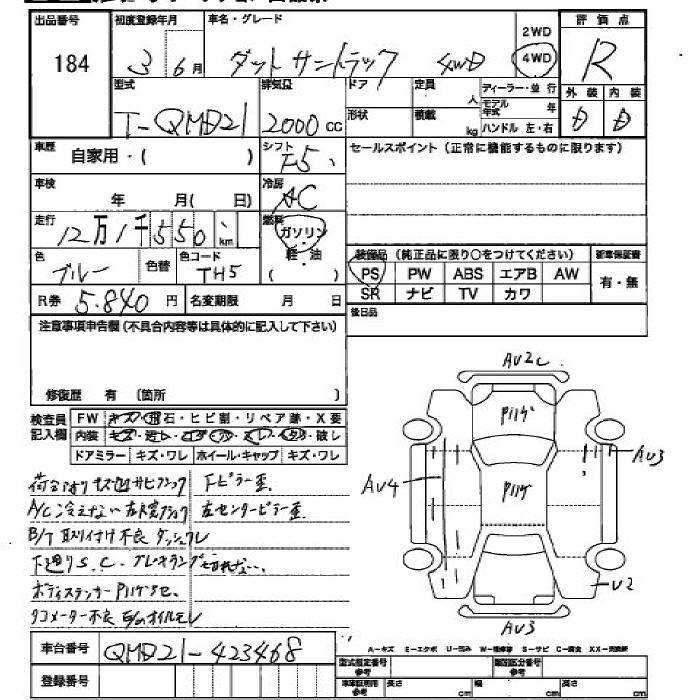 出品番号
184
初度登録年月
3 6月
車名・グレード
ダットサントラック 4WD
2WD
4WD
評価点
R
型式
T-QMD21
排気量
2000cc
ドア
形状
定員
人
積載
kg
ディーラー・並行
モデル年式 年
ハンドル 左・右
外装
D
内装
D
車歴
自家用・( )
シフト
F5
セールスポイント(正常に機能するものに限ります)
車検
年 月( 日)
冷房
AC
走行
12万1千550 km
燃料
ガソリン
軽・油
色
ブルー
色替
色コード
TH5
装備品(純正品に限り○をつけてください)
PS PW ABS エアB AW
SR ナビ TV カワ
新車保証書
有・無
R券 5.840 円
名変期限 月 日
後日品
注意事項申告欄(不具合内容等は具体的に記入して下さい)
修復歴 有 (箇所 )
検査員記入欄
FW キズ・飛石・ヒビ割・リペア跡・X要
内装 キズ・汚レ・コゲ・穴・スレ・切・破レ
ドアミラー キズ・ワレ ホイール・キャップ キズ・ワレ
A/C冷えない
B/T取り付け不良
下廻りS.C.
タコメーター不良 E/Mオイルモレ
車台番号
QMD21-423468
登録番号
AV2C
P11ゲ
P11ゲ
AV3
AV4
U2
AV3
A-キズ E-エクボ U-凹み W-補修跡 S-サビ C-腐食 XX-交換跡
型式指定番号 参考
類別区分番号 参考
車庫証明用 参考
長さ cm
幅 cm
高さ cm